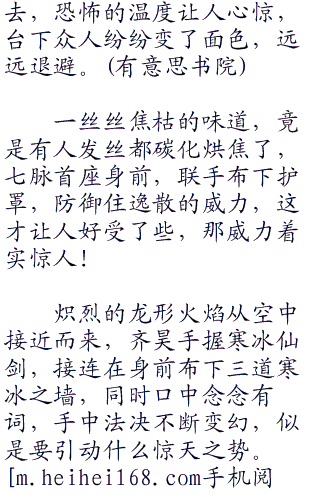 去，恐怖的温度让人心惊，
台下众人纷纷变了面色，远
远退避。(有意思书院)
一丝丝焦枯的味道，竟
是有人发丝都碳化烘焦了，
七脉首座身前，联手布下护
罩，防御住逸散的威力，这
才让人好受了些，那威力着
实惊人！
炽烈的龙形火焰从空中
接近而来，齐昊手握寒冰仙
剑，接连在身前布下三道寒
冰之墙，同时口中念念有
词，手中法决不断变幻，似
是要引动什么惊天之势。
[m.heihei168.com手机阅